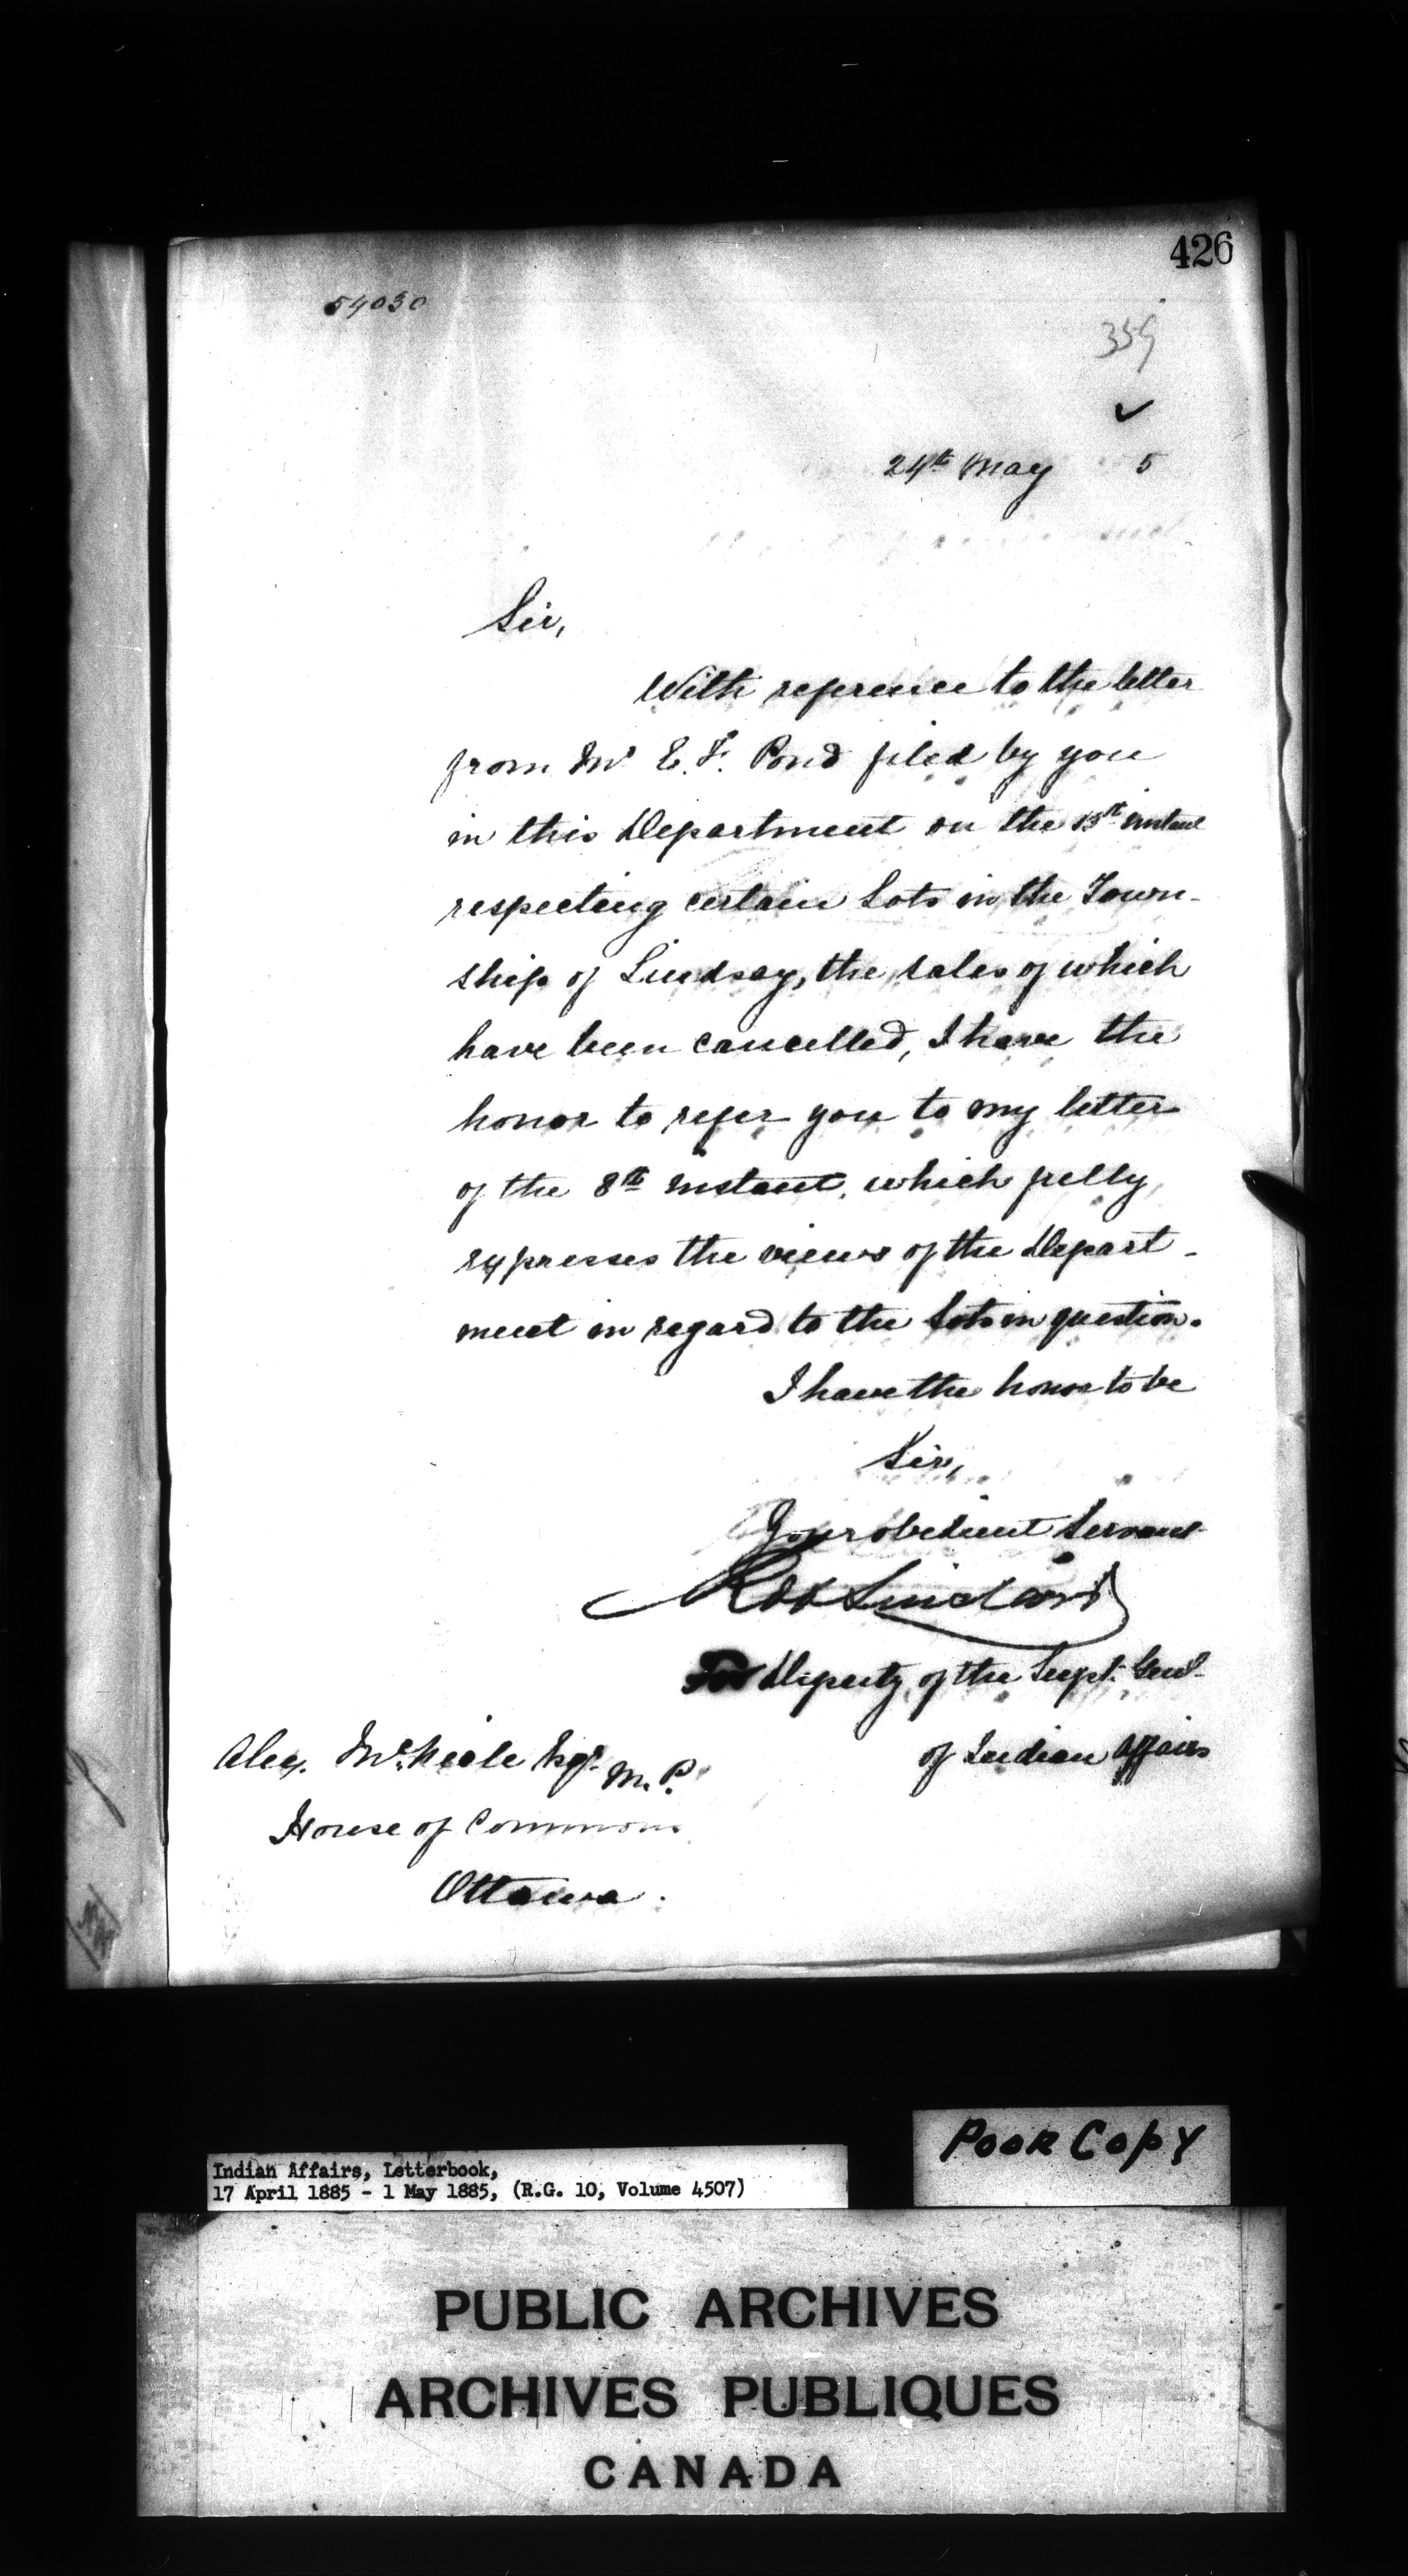 426
54030
359
24th May 5
Sir,
With reference to the letter
from Mr E. F. Pond filed by you
in this Department on the 13th instant
respecting certain Lots in the Town-
ship of Lindsay, the sales of which
have been cancelled, I have the
honor to refer you to my letter
of the 8th instant, which fully
expresses the views of the Depart-
ment in regard to the lots in question.
I have the honor to be
Sir,
Your obedient Servant
Rob Sinclair
for Deputy of the Supt. Genl.
of Indian Affairs
Alex. McNeile Esqr. M.P.
House of Commons
Ottawa.
Poor Copy
Indian Affairs, Letterbook,
17 April 1885 - 1 May 1885, (R.G. 10, Volume 4507)
PUBLIC ARCHIVES
ARCHIVES PUBLIQUES
CANADA